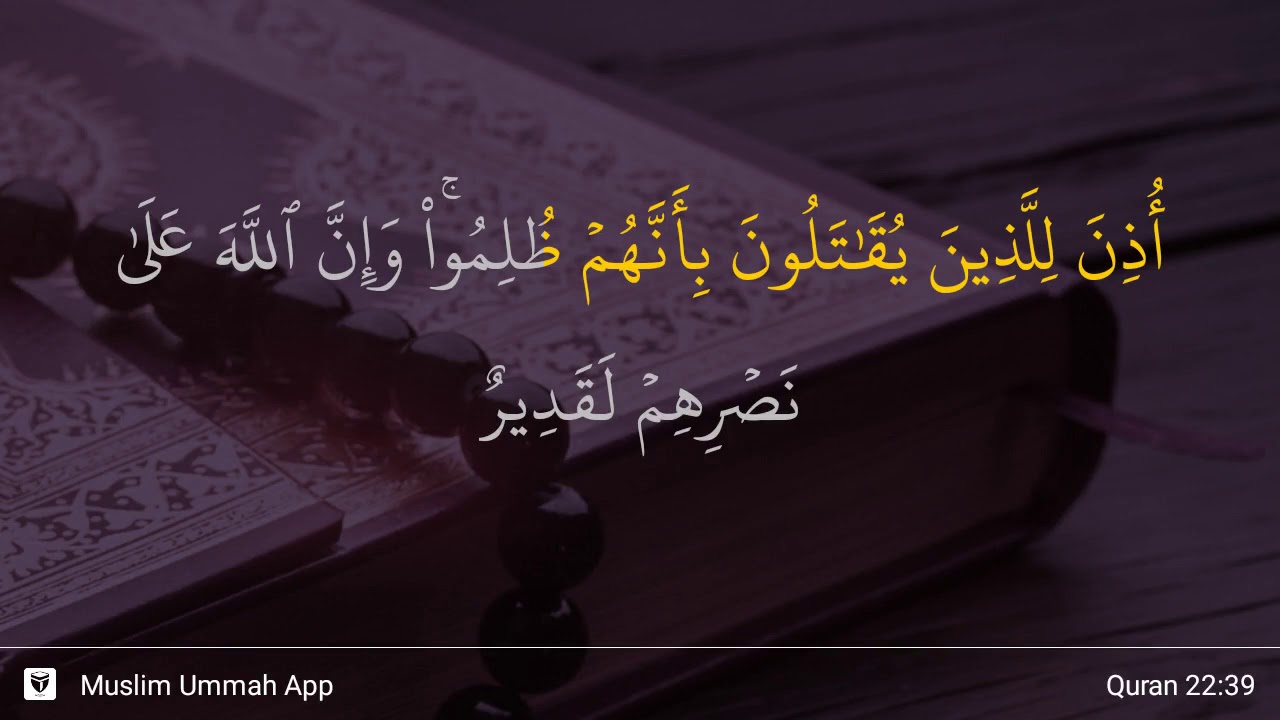 أُذِنَ لِلَّذِينَ يُقَٰتَلُونَ بِأَنَّهُمْ ظُلِمُوا۟ ۚ وَإِنَّ ٱللَّهَ عَلَىٰ
نَصْرِهِمْ لَقَدِيرٌ
Muslim Ummah App
Quran 22:39